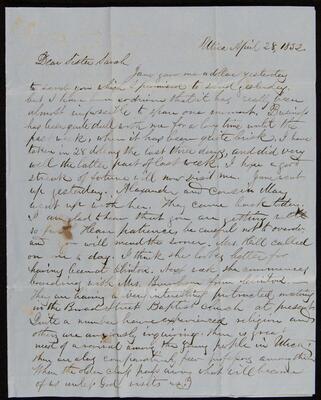 Utica April 28, 1852
Dear Sister Sarah
Jany gave me a dollar yesterday
to send you which I promised to send yesterday.
but I have been so driven that it has really been
almost impossible to spare one moment. Business
has been quite dull with me for a long time until the
past week, when it has been quite brisk, I have
taken in 28 dol. in the last three days, and did very
well the latter part of last week. I hope a good
streak of fortune will now visit me. went
up yesterday. Alexander and Cousin Mary
went up with her. They came back to day.
I am glad to hear that you are getting
so Have patience, be careful not to overdo
and you will mend the sooner. Mrs. Hill called
on me to day. I think she looks better for
having been at Clinton. Next week she commences
boarding with Mrs. from Clinton.
They are having a very interesting protracted meeting
with Broad Street Baptist Church at present
Quite a number have experienced religion and
others are anxiously inquiring. There is great
need of a revival among the young people in Utica.
there are very comparatively few professors among them
When the older class pass away what will become
of us unless God visits us?